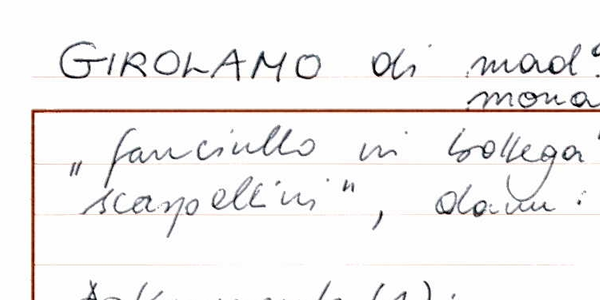 GIROLAMO di mad
mona
"fanciullo in bottega"
scarpellini",